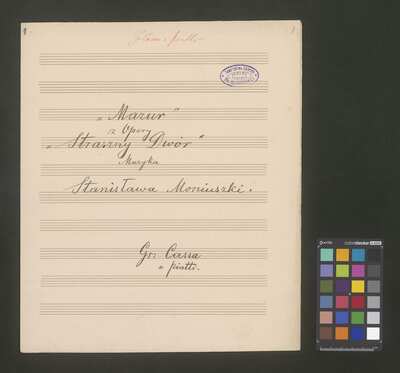 „Mazur"
z Opery
„Straszny Dwór"
Muzyka
Stanisława Moniuszki.
Gr: Cassa
e piatti.